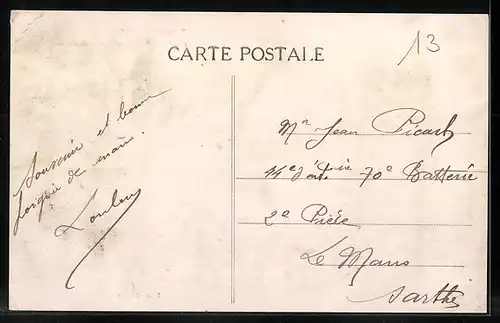 CARTE POSTALE
13
Souvenir et bonne
poignée de main.
Mr Jean Picard
44e d'art.ie 70e Batterie
2e Pièce
Le Mans
Sarthe